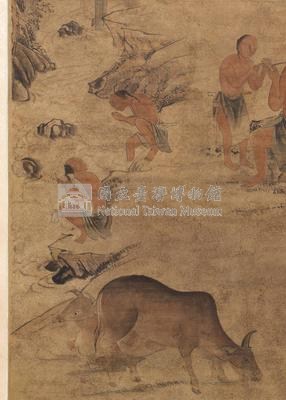 國立臺灣博物館
National Taiwan Museum